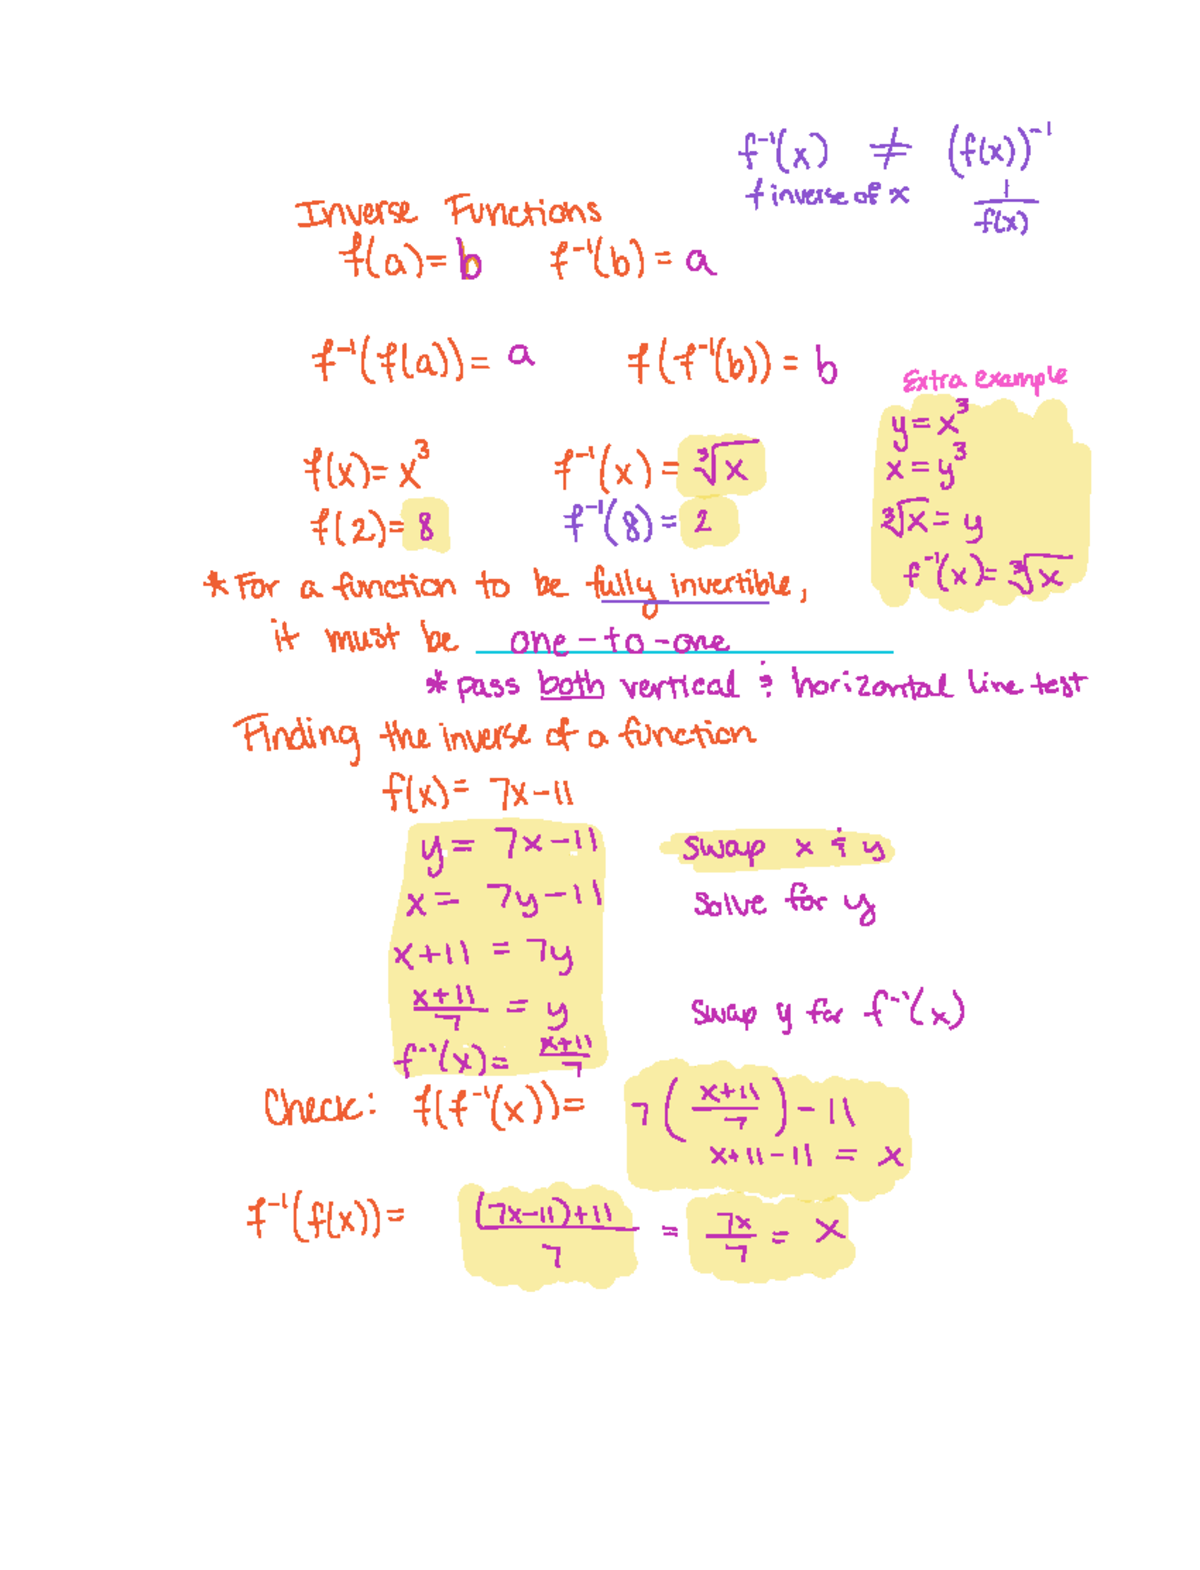 f⁻¹(x) ≠ (f(x))⁻¹
f inverse of x 1/f(x)
Inverse Functions
f(a)= b f⁻¹(b) = a
f⁻¹(f(a)) = a f(f⁻¹(b)) = b
Extra example
y = x³
x = y³
∛x = y
f⁻¹(x) = ∛x
f(x)= x³ f⁻¹(x) = ∛x
f(2)= 8 f⁻¹(8) = 2
* For a function to be fully invertible,
it must be one-to-one
* pass both vertical & horizontal line test
Finding the inverse of a function
f(x) = 7x-11
y = 7x-11 Swap x & y
x = 7y-11 Solve for y
x+11 = 7y
(x+11)/7 = y Swap y for f⁻¹(x)
f⁻¹(x) = (x+11)/7
Check: f(f⁻¹(x)) = 7((x+11)/7) - 11
x+11-11 = x
f⁻¹(f(x)) = ((7x-11)+11)/7 = 7x/7 = x